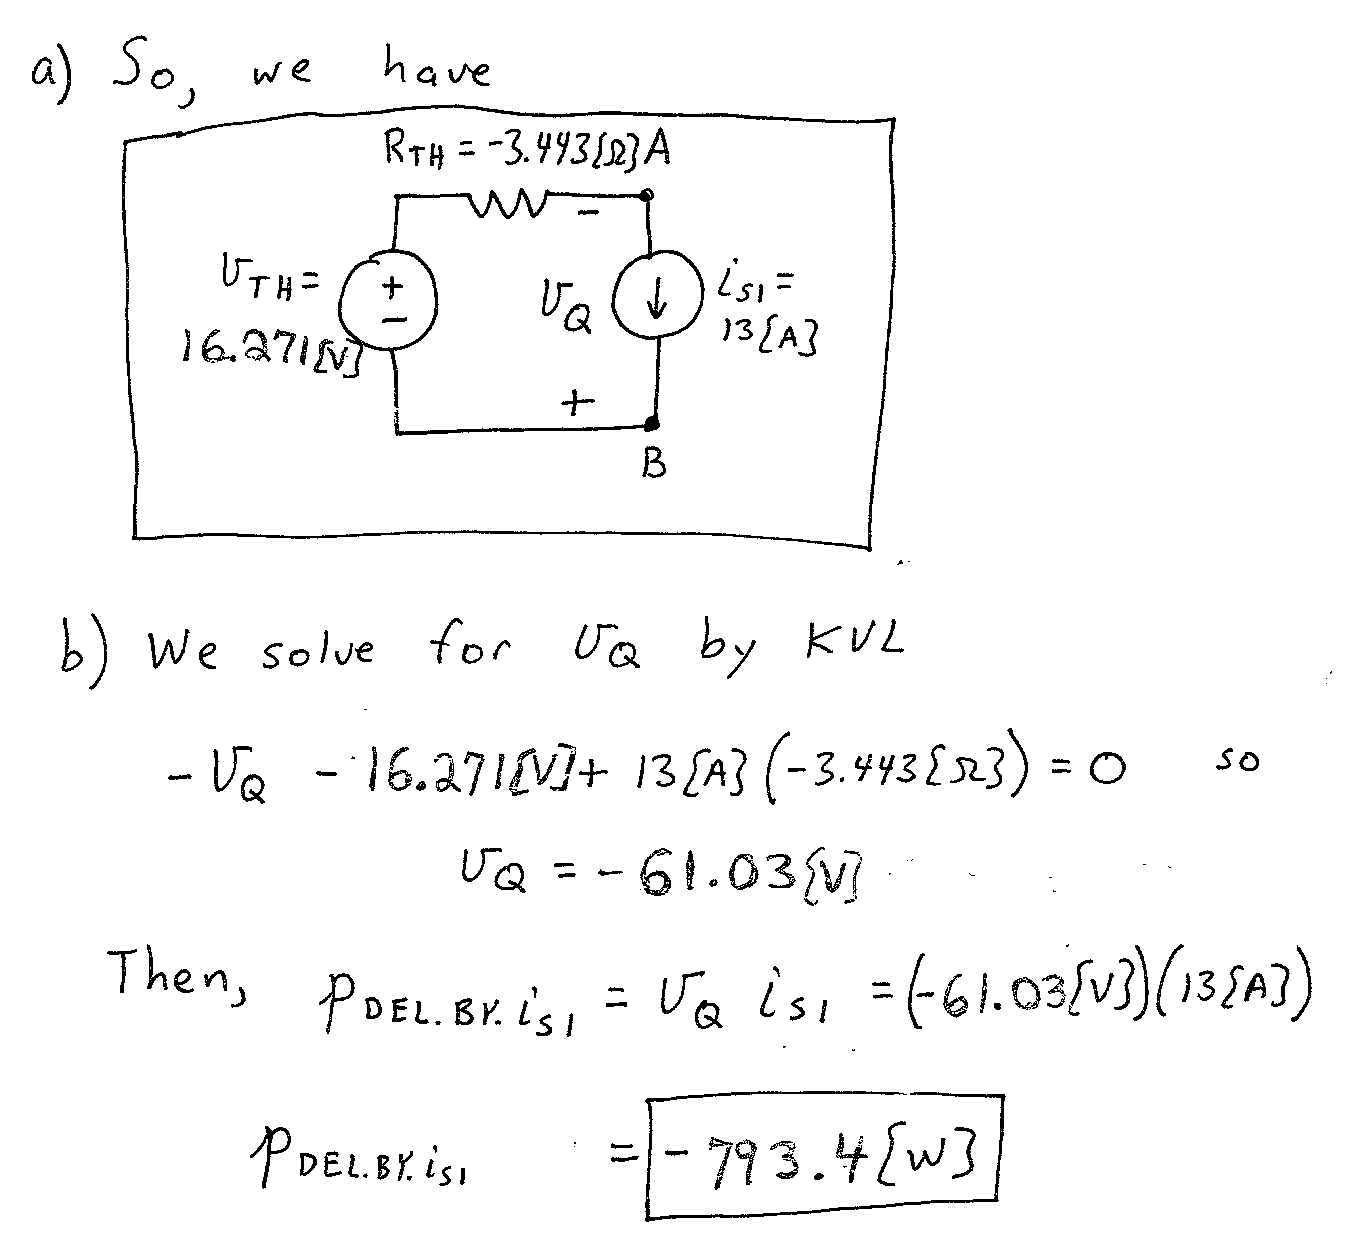 a) So, we have
R_TH = -3.443[Ω] A
v_TH =
16.271[V]
+
-
-
v_Q
+
i_S1 =
13[A]
B
b) We solve for v_Q by KVL
-v_Q - 16.271[V] + 13[A](-3.443[Ω]) = 0 so
v_Q = -61.03[V]
Then, p_DEL.BY.i_S1 = v_Q i_S1 = (-61.03[V])(13[A])
p_DEL.BY.i_S1 = -793.4[W]